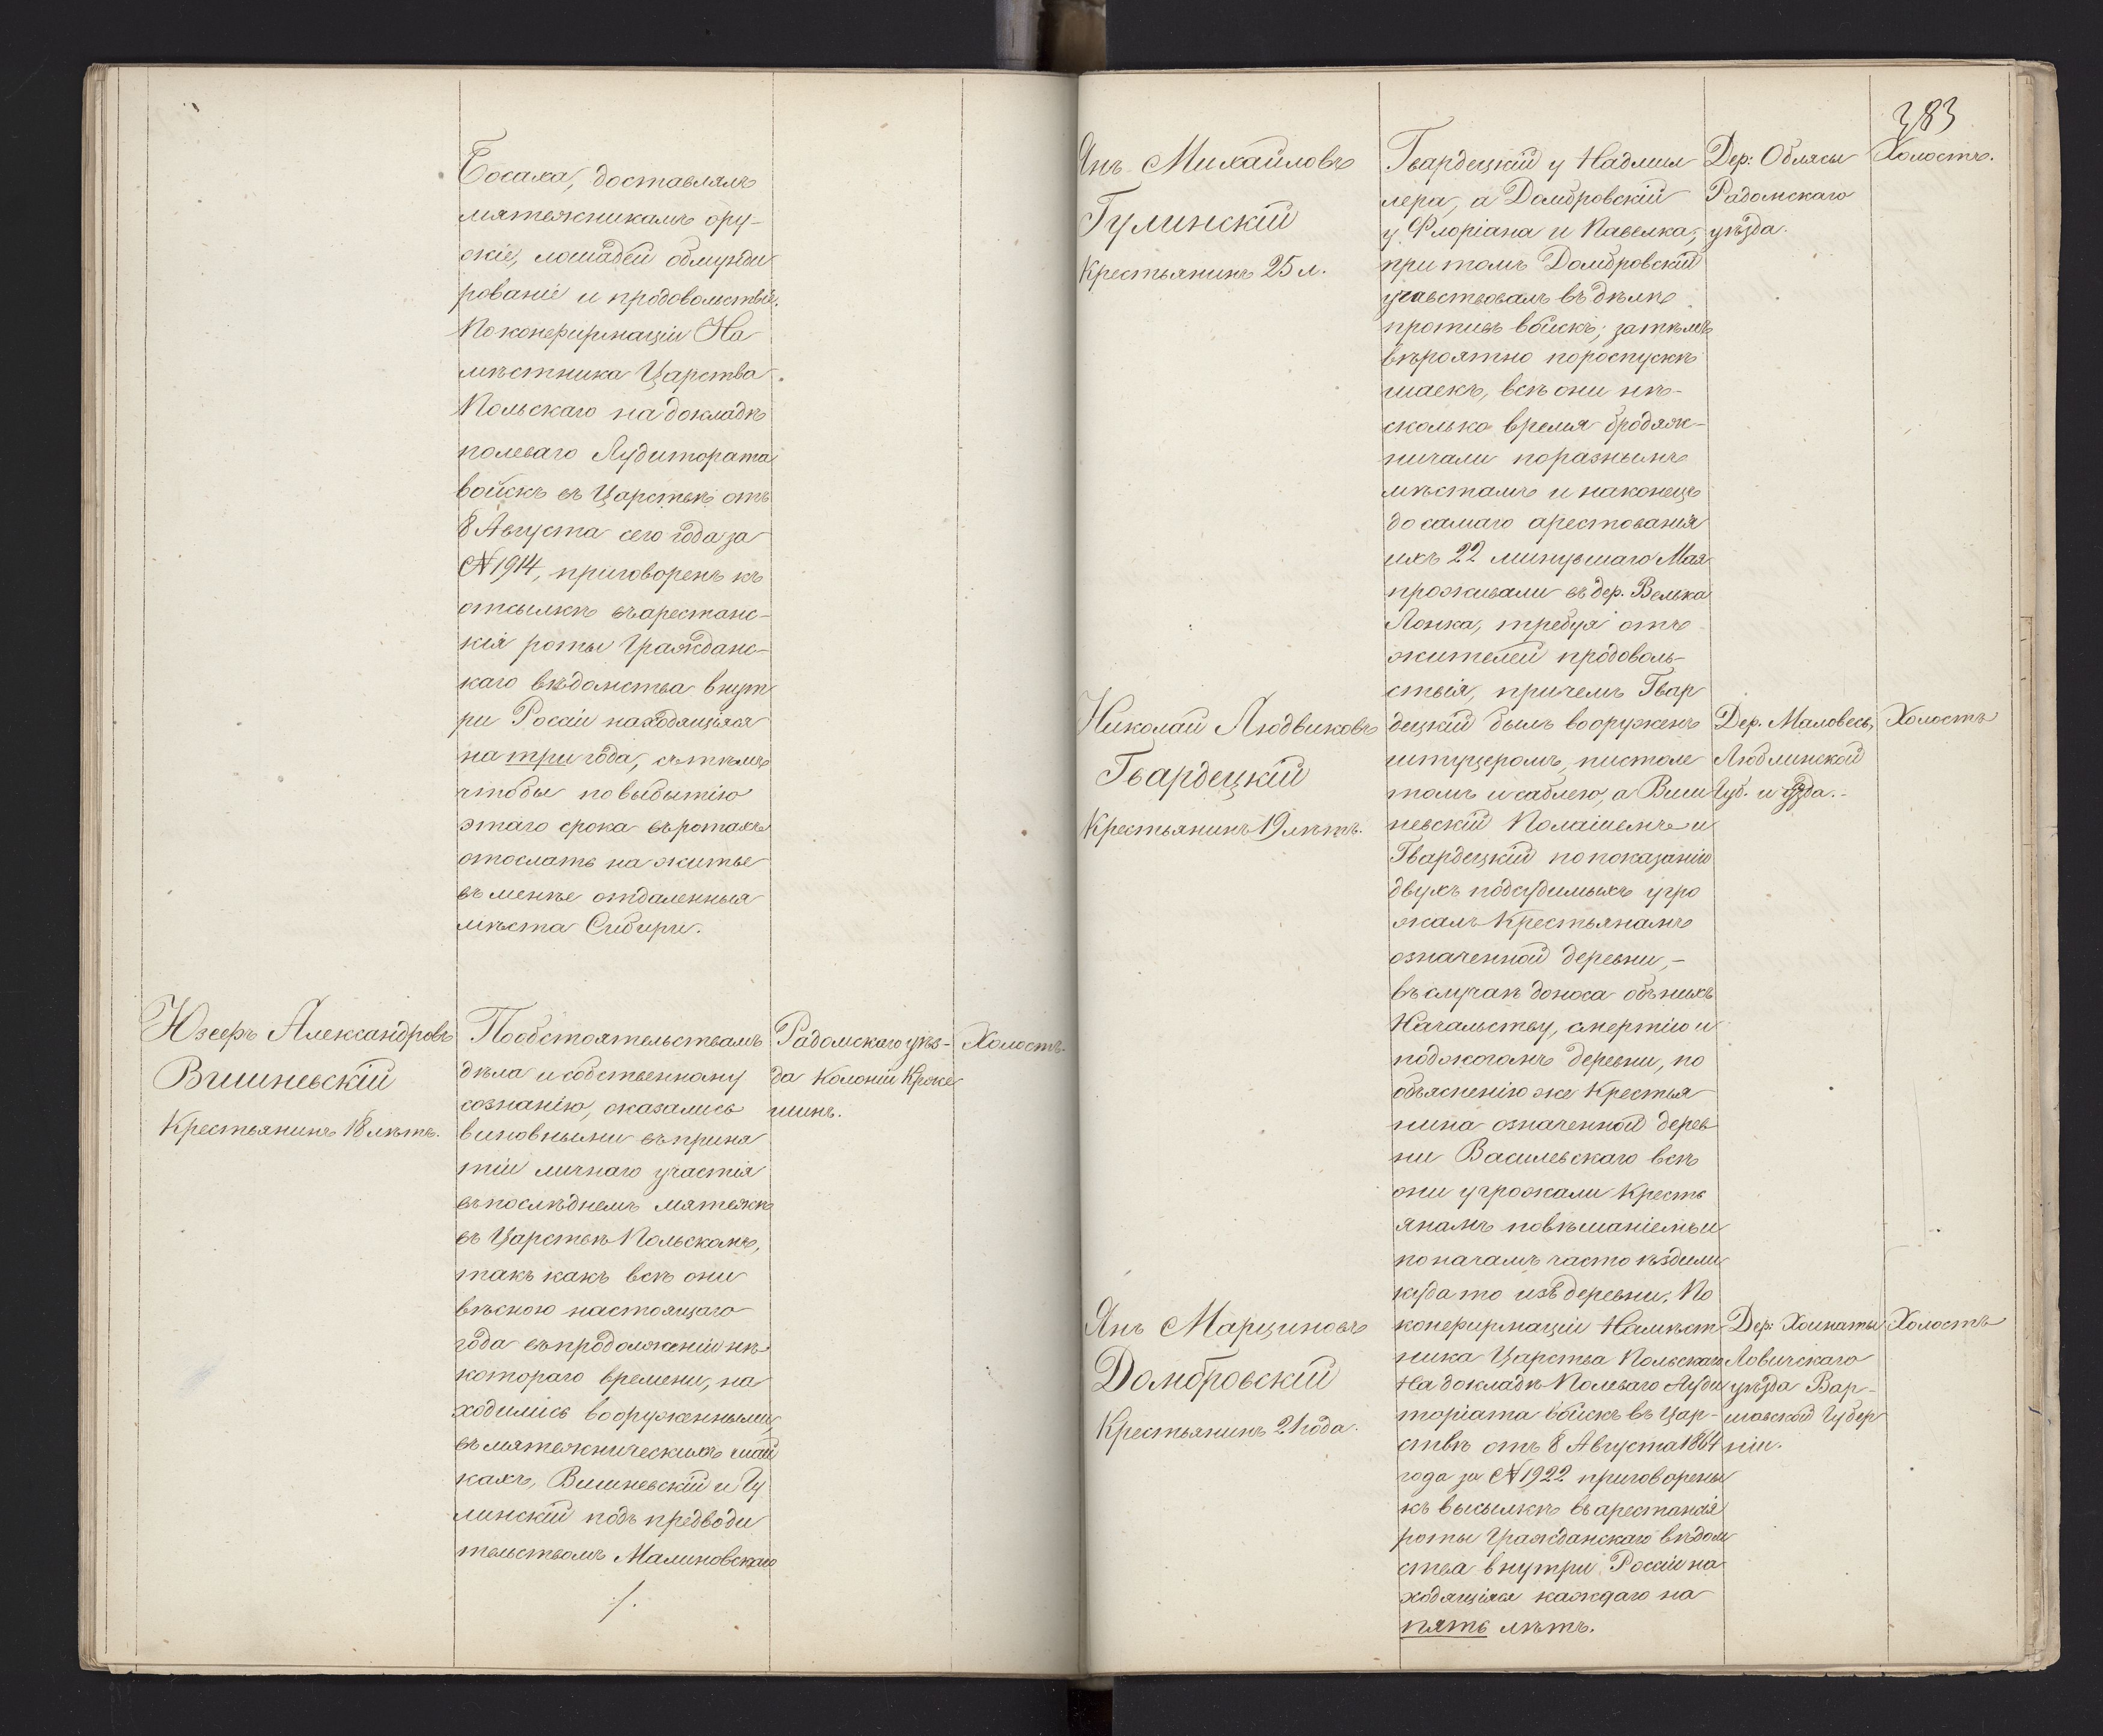 Босака, доставлялъ
мятежникамъ ору-
жіе, лошадей обмунди
рованіе и продовольствіе.
По конфирмаціи На
мѣстника Царства
Польскаго на докладѣ
полеваго Аудитората
войскъ въ Царствѣ отъ
8 Августа сего года за
№ 1914, приговоренъ къ
отсылкѣ въ арестанс-
кія роты Гражданс-
каго вѣдомства внут
ри Росіи находящіяся
на три года, съ тѣмъ
чтобы по выбытію
этаго срока въ ротахъ
отослать на житье
въ менѣе отдаленныя
мѣста Сибири.
Юзефъ Александровъ
Вишневскій
Крестьянинъ 18 лѣтъ.
По обстоятельствамъ
дѣла и собственному
сознанію, оказались
виновными въ приня
тіи личнаго участія
въ послѣднемъ мятежѣ
въ Царствѣ Польскомъ,
такъ какъ всѣ они
вѣсною настоящаго
года въ продолженіи нѣ
котораго времени, на
ходились вооруженными
въ мятежническихъ шай
кахъ, Вишневскій и Гу
линскій подъ предводи
тельствомъ Малиновскаго
./.
Радомскаго уѣз-
да Колоніи Кроже
шинъ.
Холостъ.
383
Янъ Михайловъ
Гулинскій
Крестьянинъ 25 л.
Гвардецкій у Надмил
лера, а Домбровскій
у Флоріана и Павелка,
при томъ Домбровскій
учавствовалъ въ дѣлѣ
противъ войскъ; затѣмъ
вѣроятно по роспускѣ
шаекъ, всѣ они нѣ-
сколько время бродяж-
ничали по разнымъ
мѣстамъ и наконецъ
до самаго арестованія
ихъ 22 минувшаго Мая
проживали въ дер. Велька
Лонка, требуя отъ
жителей продоволь-
ствія, причемъ Гвар
децкій былъ вооруженъ
штуцеромъ, пистоле
томъ и саблею, а Виш
невскій Полашемъ и
Гвардецкій по показанію
двухъ подсудимыхъ угро
жалъ Крестьянамъ
означенной деревни, -
въ случаѣ доноса объ нихъ
Начальству, смертію и
поджогомъ деревни, по
объясненію же Крестья
нина означенной дерев
ни Василевскаго всѣ
они угрожали Кресть
янамъ повѣшаніемъ и
по ночамъ часто ѣздили
куда то изъ деревни. По
конфирмаціи Намѣст
ника Царства Польскаго
На докладѣ Полеваго Ауди
торіата войскъ въ Цар-
ствѣ отъ 8 Августа 1864
года за № 1922 приговорены
къ высылкѣ въ арестанскія
роты Гражданскаго вѣдом
ства внутри Россіи на
ходящіяся каждаго на
пять лѣтъ.
Дер: Облясы
Радомскаго
уѣзда.
Холостъ.
Николай Людвиковъ
Гвардецкій
Крестьянинъ 19 лѣтъ.
Дер. Маловесь,
Люблинской
Губ. и уѣзда.
Холостъ
Янъ Марциновъ
Домбровскій
Крестьянинъ 21 года.
Дер:
Ловичскаго
уѣзда Вар-
шавской Губер
ніи.
Холостъ